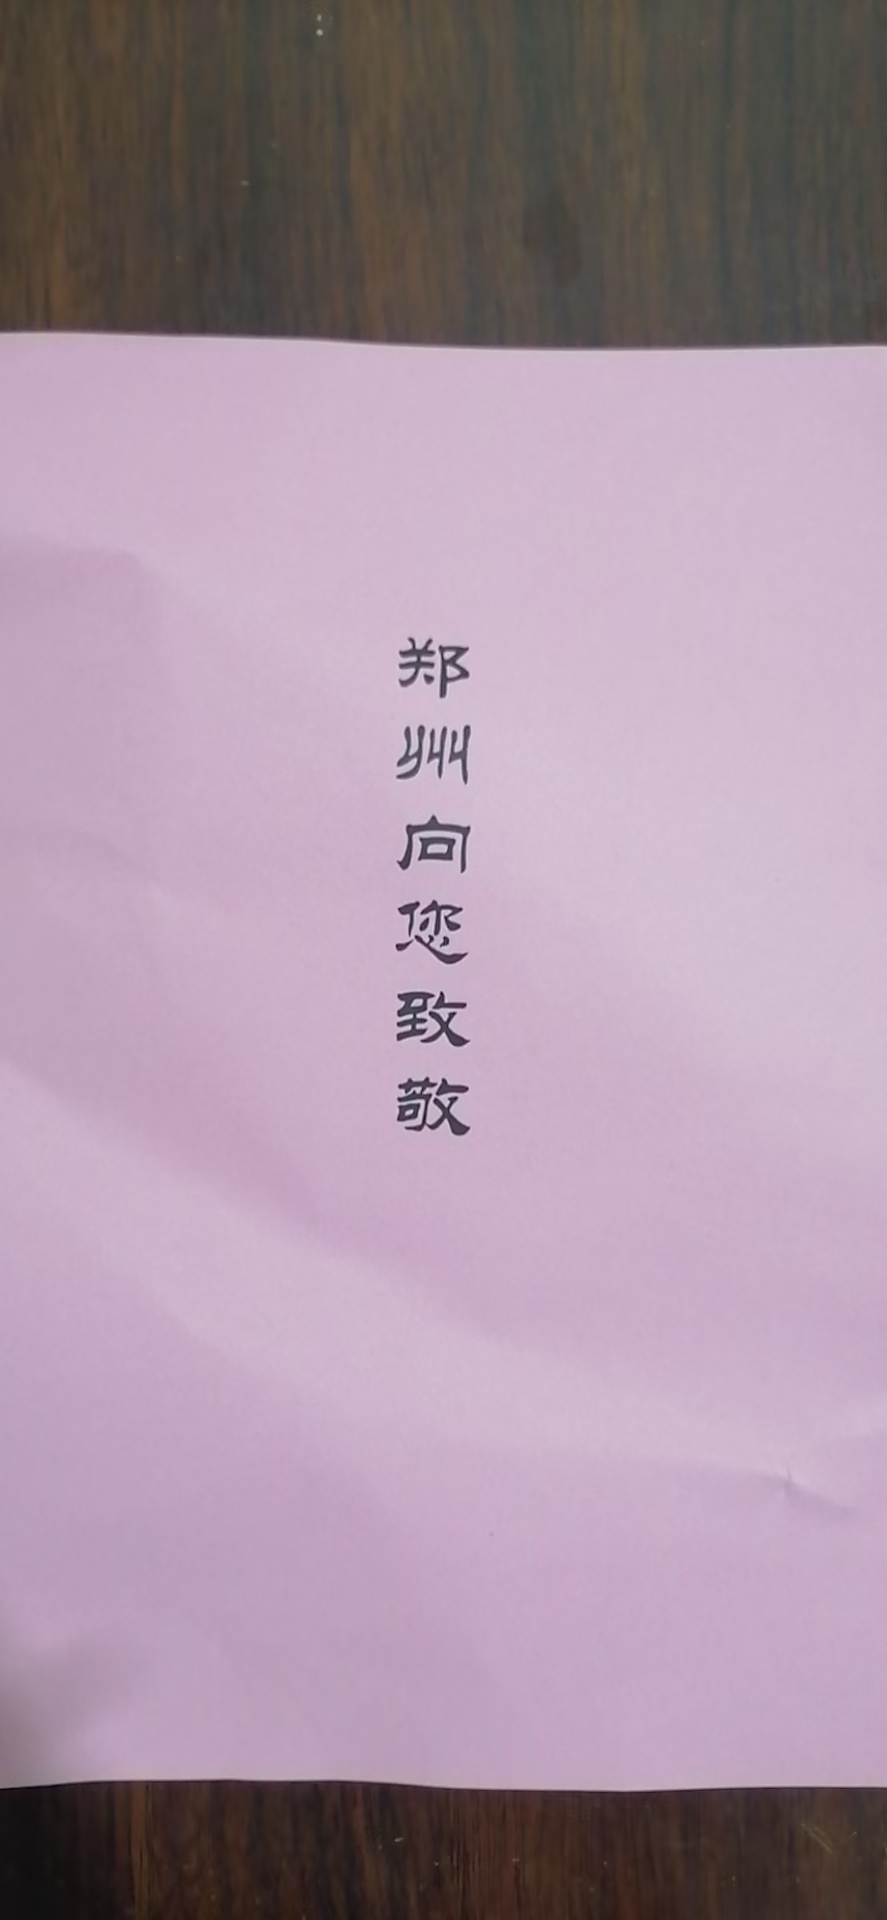 郑州向您致敬